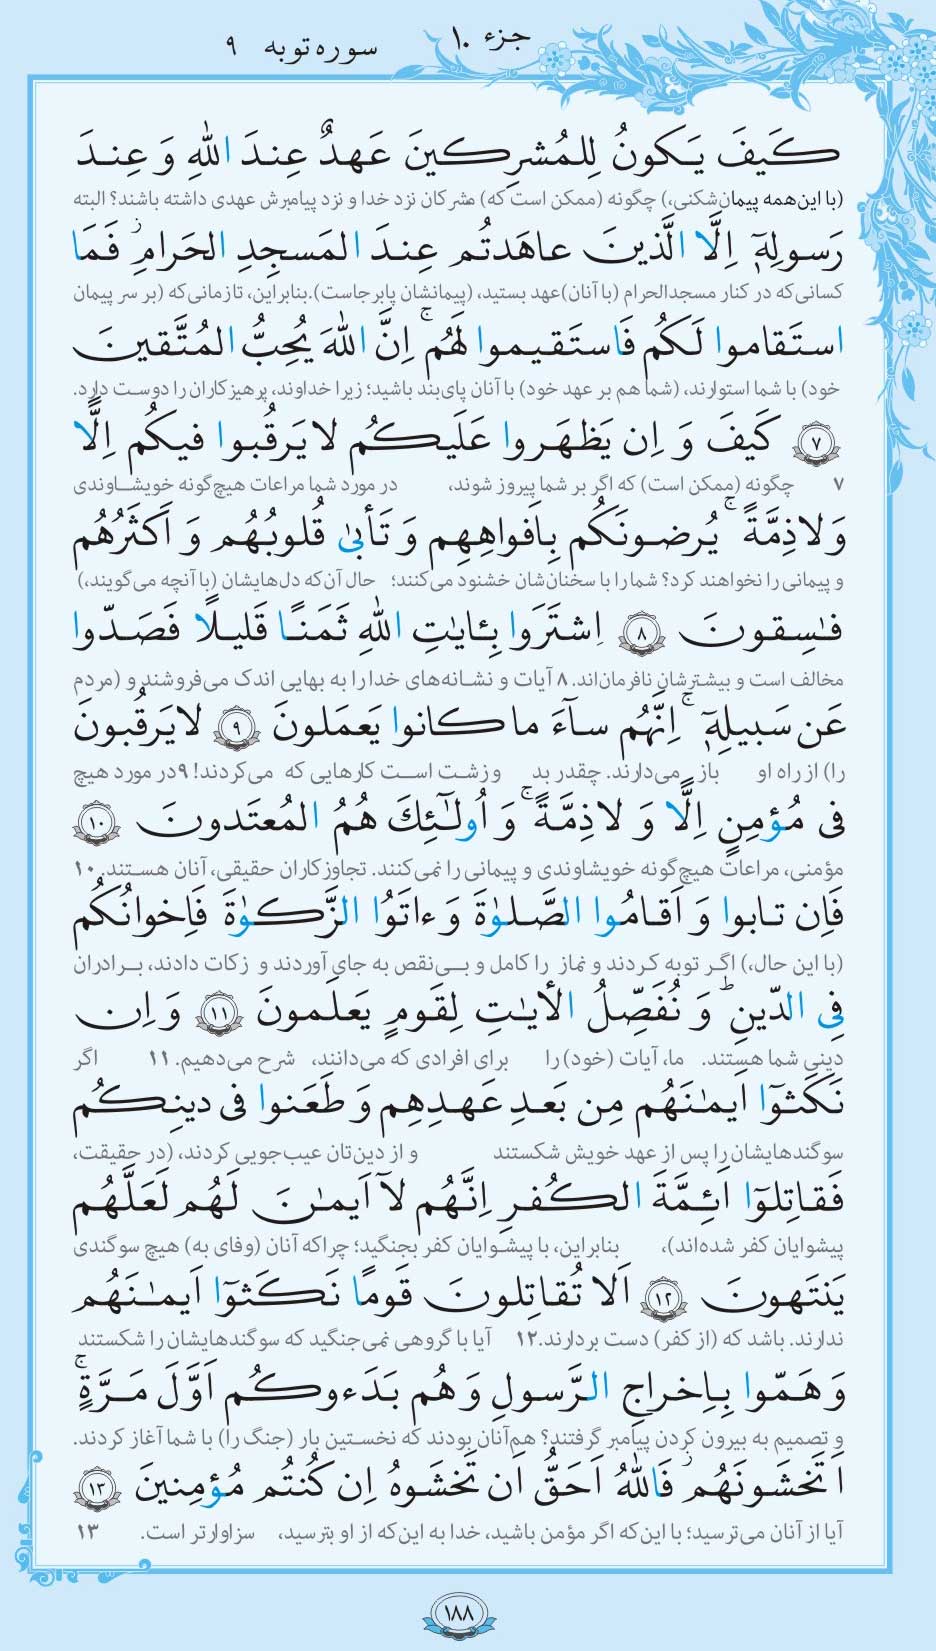 جزء ۱۰
سوره توبه ۹
كَيفَ يَكونُ لِلمُشرِكينَ عَهدٌ عِندَ اللهِ وَ عِندَ
(با این‌همه پیمان‌شکنی،) چگونه (ممکن است که) مشرکان نزد خدا و نزد پیامبرش عهدی داشته باشند؟ البته
رَسولِهٓ اِلَّا الَّذينَ عاهَدتُم عِندَ المَسجِدِ الحَرامِ ۖ فَمَا
کسانی‌که در کنار مسجدالحرام (با آنان) عهد بستید، (پیمانشان پابرجاست). بنابراین، تا زمانی‌که (بر سر پیمان
استَقاموا لَكُم فَاستَقيموا لَهُم ۚ اِنَّ اللهَ يُحِبُّ المُتَّقينَ
خود) با شما استوارند، (شما هم بر عهد خود) با آنان پای‌بند باشید؛ زیرا خداوند، پرهیزکاران را دوست دارد.
۷ كَيفَ وَ اِن يَظهَروا عَلَيكُم لا يَرقُبوا فيكُم اِلًّا
۷ چگونه (ممکن است) که اگر بر شما پیروز شوند، در مورد شما مراعات هیچ‌گونه خویشاوندی
وَلا ذِمَّةً ۚ يُرضونَكُم بِاَفواهِهِم وَ تَأبىٰ قُلوبُهُم وَ اَكثَرُهُم
و پیمانی را نخواهند کرد؟ شما را با سخنان‌شان خشنود می‌کنند؛ حال آن‌که دل‌هایشان (با آنچه می‌گویند،)
فٰسِقونَ ۸ اِشتَرَوا بِـٔايٰتِ اللهِ ثَمَنًا قَليلًا فَصَدّوا
مخالف است و بیشترشان نافرمان‌اند. ۸ آیات و نشانه‌های خدا را به بهایی اندک می‌فروشند و (مردم
عَن سَبيلِهٓ ۚ اِنَّهُم سآءَ ما كانوا يَعمَلونَ ۹ لا يَرقُبونَ
را) از راه او باز می‌دارند. چقدر بد و زشت است کارهایی که می‌کردند! ۹ در مورد هیچ
فى مُؤمِنٍ اِلًّا وَ لا ذِمَّةً ۚ وَ اُولٰٓئِكَ هُمُ المُعتَدونَ ۱۰
مؤمنی، مراعات هیچ‌گونه خویشاوندی و پیمانی را نمی‌کنند. تجاوزکاران حقیقی، آنان هستند. ۱۰
فَاِن تابوا وَ اَقامُوا الصَّلوٰةَ وَ ءاتَوُا الزَّكوٰةَ فَاِخوانُكُم
(با این حال،) اگر توبه کردند و نماز را کامل و بی‌نقص به جای آوردند و زکات دادند، برادران
فِى الدّينِ ۗ وَ نُفَصِّلُ الأيٰتِ لِقَومٍ يَعلَمونَ ۱۱ وَ اِن
دینی شما هستند. ما، آیات (خود) را برای افرادی که می‌دانند، شرح می‌دهیم. ۱۱ اگر
نَكَثوٓا اَيمٰنَهُم مِن بَعدِ عَهدِهِم وَ طَعَنوا فى دينِكُم
سوگندهایشان را پس از عهد خویش شکستند و از دین‌تان عیب‌جویی کردند، (در حقیقت،
فَقاتِلوٓا اَئِمَّةَ الكُفرِ اِنَّهُم لآ اَيمٰنَ لَهُم لَعَلَّهُم
پیشوایان کفر شده‌اند)، بنابراین، با پیشوایان کفر بجنگید؛ چراکه آنان (وفای به) هیچ سوگندی
يَنتَهونَ ۱۲ اَلا تُقاتِلونَ قَومًا نَكَثوٓا اَيمٰنَهُم
ندارند. باشد که (از کفر) دست بردارند. ۱۲ آیا با گروهی نمی‌جنگید که سوگندهایشان را شکستند
وَ هَمّوا بِاِخراجِ الرَّسولِ وَ هُم بَدَءوكُم اَوَّلَ مَرَّةٍ ۚ
و تصمیم به بیرون کردن پیامبر گرفتند؟ هم‌آنان بودند که نخستین بار (جنگ را) با شما آغاز کردند.
اَتَخشَونَهُم ۖ فَاللهُ اَحَقُّ اَن تَخشَوهُ اِن كُنتُم مُؤمِنينَ ۱۳
آیا از آنان می‌ترسید؛ با این‌که اگر مؤمن باشید، خدا به این‌که از او بترسید، سزاوارتر است. ۱۳
۱۸۸